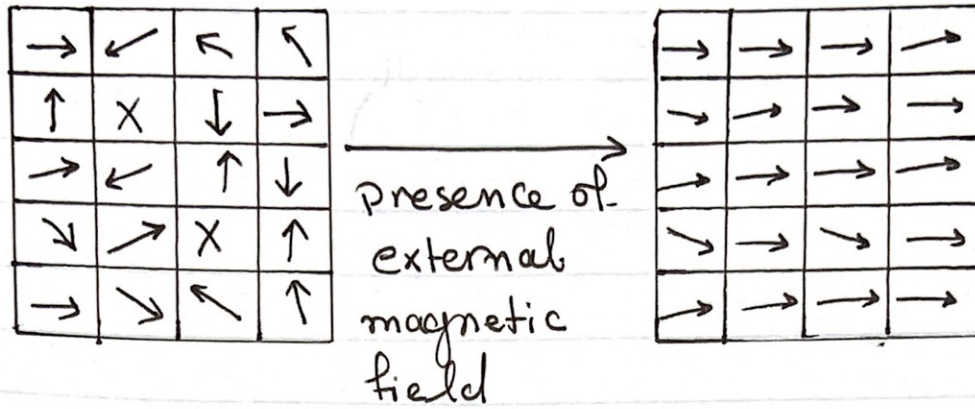 presence of
external
magnetic
field